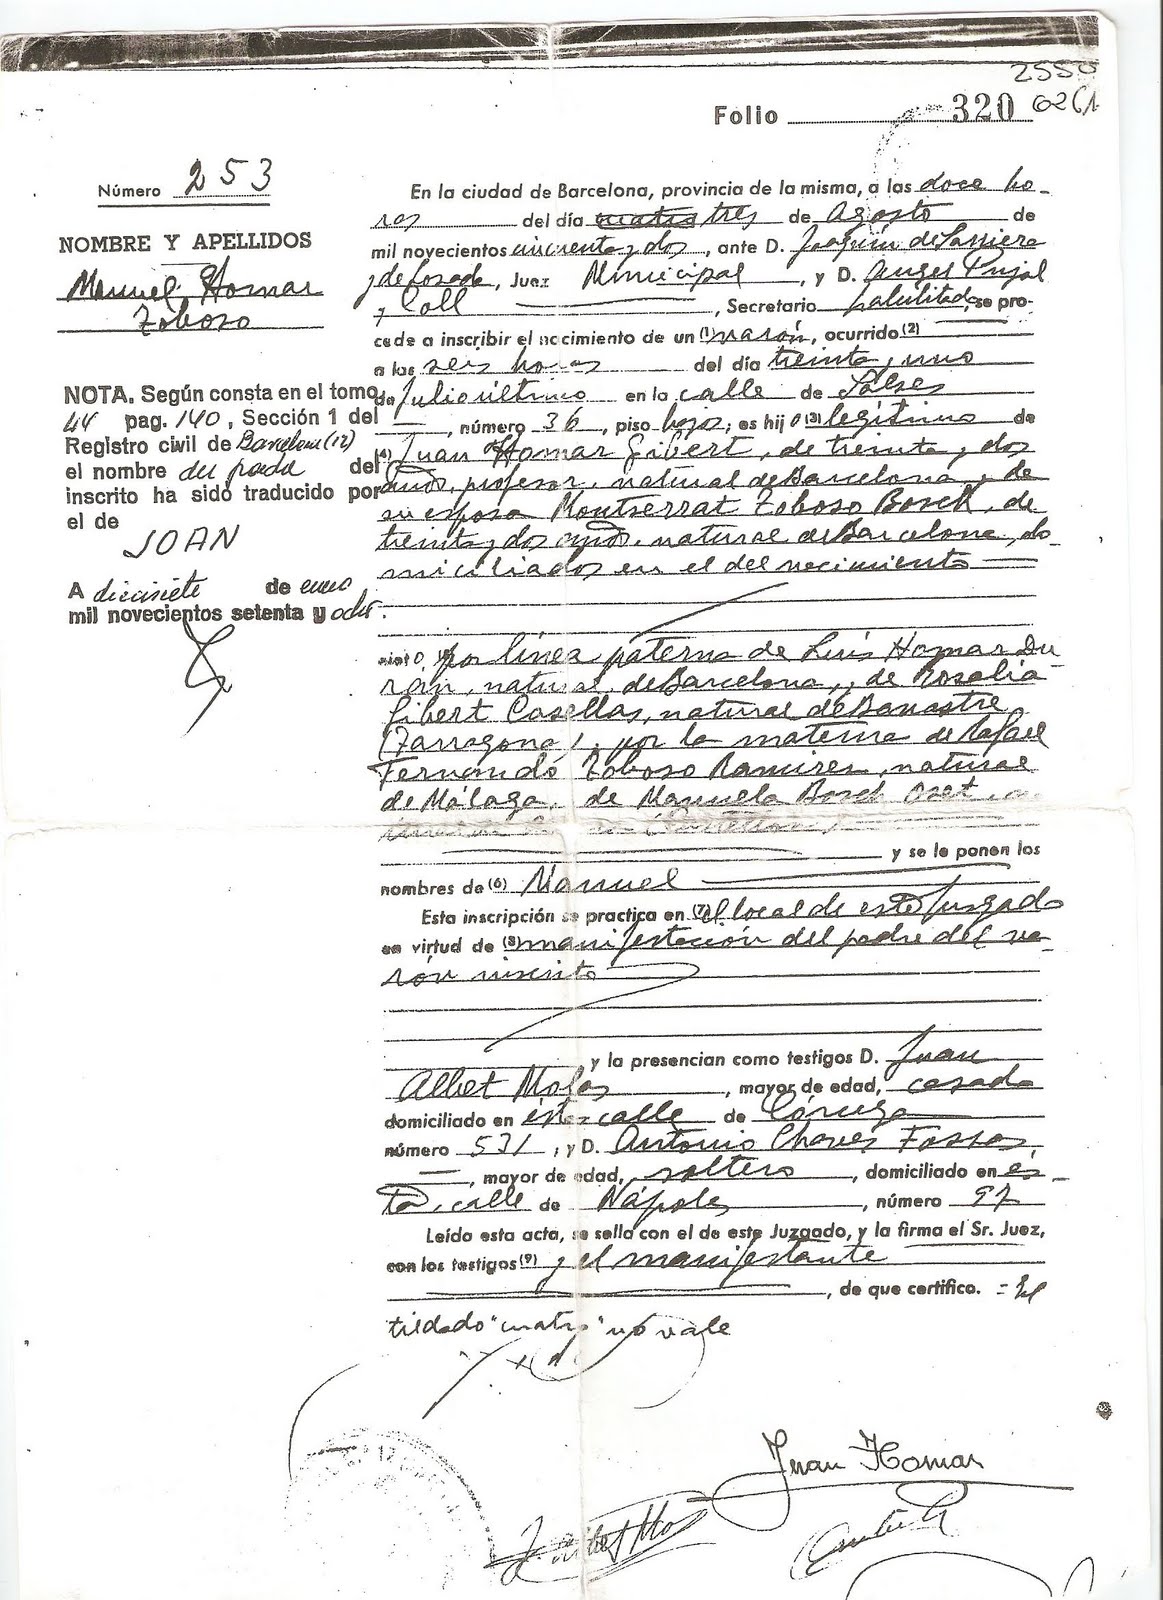 2550
Folio 320 6261
Número 253
NOMBRE Y APELLIDOS
Manuel Homar
Toboso
NOTA. Según consta en el tomo
44 pag. 140, Sección 1 del
Registro civil de Barcelona (12)
el nombre del padre del
inscrito ha sido traducido por
el de
JOAN
A diecisiete de enero
mil novecientos setenta y ocho.
En la ciudad de Barcelona, provincia de la misma, a las doce ho-
ras del día cuatro tres de Agosto de
mil novecientos cincuenta y dos, ante D. Joaquín de
y de Posada, Juez Municipal, y D. Angel Pujal
y Coll, Secretario habilitado, se pro-
cede a inscribir el nacimiento de un (1) varón, ocurrido (2)
a las seis horas del día treinta y uno
de Julio último en la calle de Salses
número 36, piso bajos; es hijo (3) legítimo de
(4) Juan Homar Gibert, de treinta y dos
años, profesor, natural de Barcelona y de
su esposa Montserrat Toboso Bosch, de
treinta y dos años, natural de Barcelona, do-
miciliados en el del nacimiento
nieto, por línea paterna de Luis Homar Du-
rán, natural de Barcelona, y de Rosalia
Gibert Casellas, natural de Banastre
(Tarragona), y por la materna de Rafael
Fernando Toboso Ramirez, natural
de Málaga, de Manuela Bosch Oset
y se le ponen los
nombres de (6) Manuel
Esta inscripción se practica en (7) el local de este Juzgado
en virtud de (8) manifestación del padre del va-
rón inscrito
y la presencian como testigos D. Juan
Albet Molas, mayor de edad, casado
domiciliado en ésta calle de Córcega
número 531, y D. Antonio Chaves Fossas
, mayor de edad, soltero, domiciliado en és-
ta, calle de Nápoles, número 97
Leído esta acta, se sella con el de este Juzgado, y la firma el Sr. Juez,
con los testigos (9) y el manifestante
, de que certifico. = El
tildado "cuatro" no vale
Juan Homar